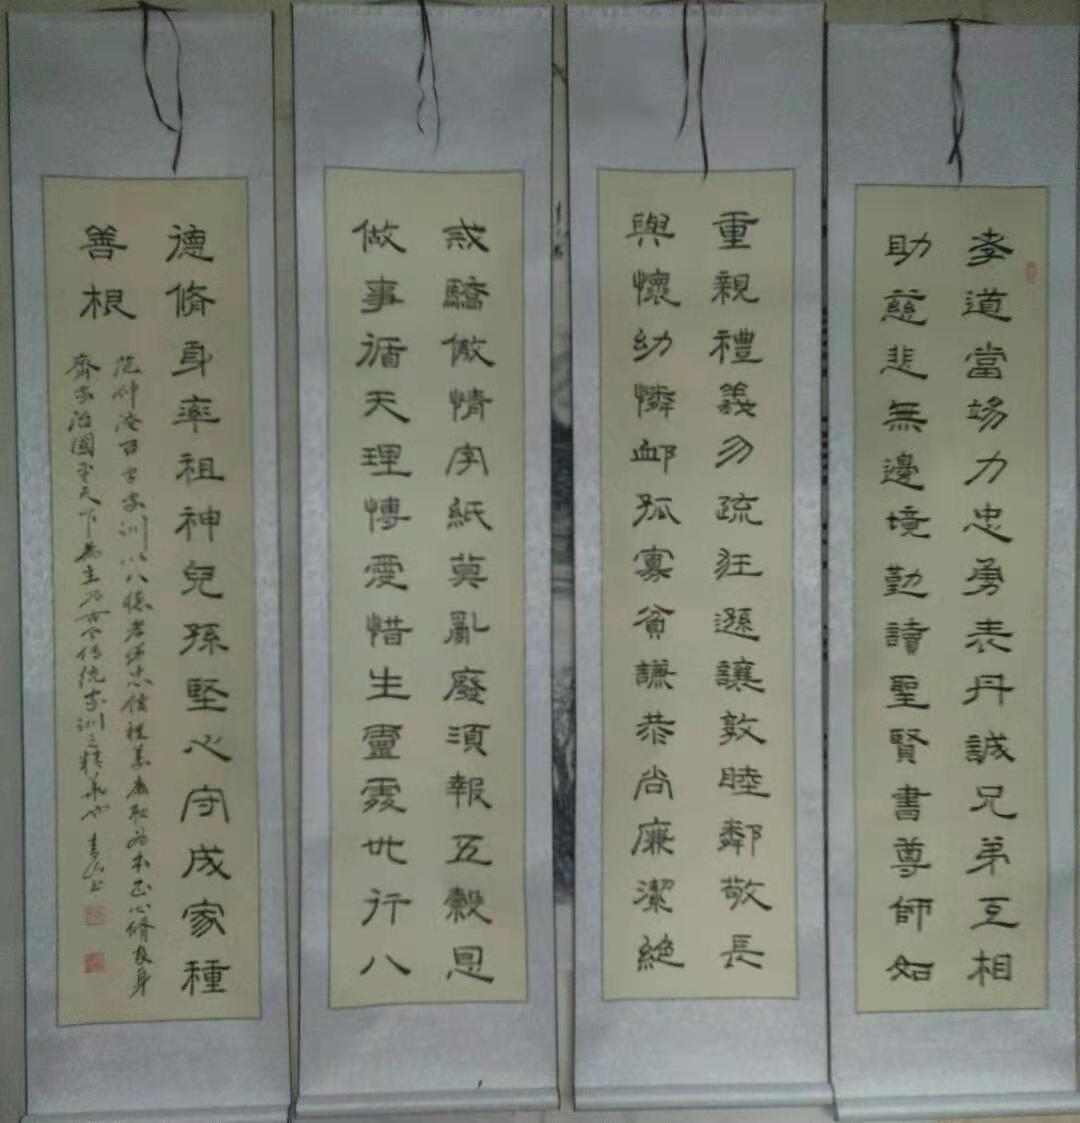 孝道當竭力忠勇表丹誠兄弟互相
助慈悲無邊境勤讀聖賢書尊師如
重親禮義勿疏狂遜讓敦睦鄰敬長
與懷幼憐卹孤寡貧謙恭尚廉潔絕
戒驕傲情字紙莫亂廢須報五穀恩
做事循天理博愛惜生靈處世行八
德脩身率祖神兒孫堅心守成家種
善根
范仲淹百字家訓以八德孝弟忠信禮義廉恥為本正心脩身
齊家治國平天下為主乃古今傳統家訓之精華也 青山